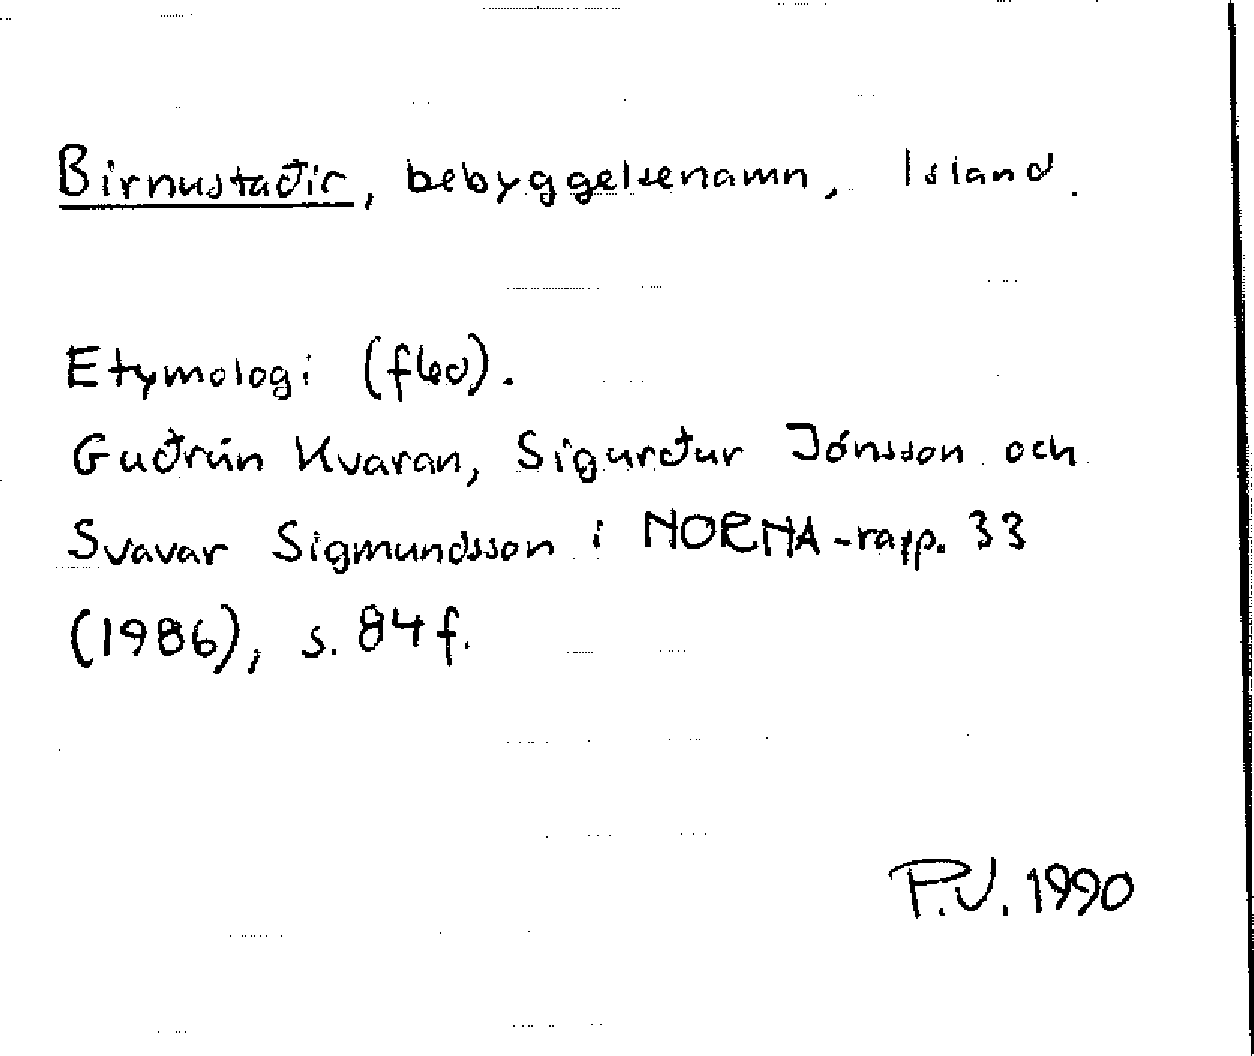 Birnustaðir, bebyggelsenamn, Island.
Etymologi (fled).
Guðrún Kvaran, Sigurður Jónsson och
Svavar Sigmundsson i NORNA-rapp. 33
(1986), s. 84 f.
P.V. 1990